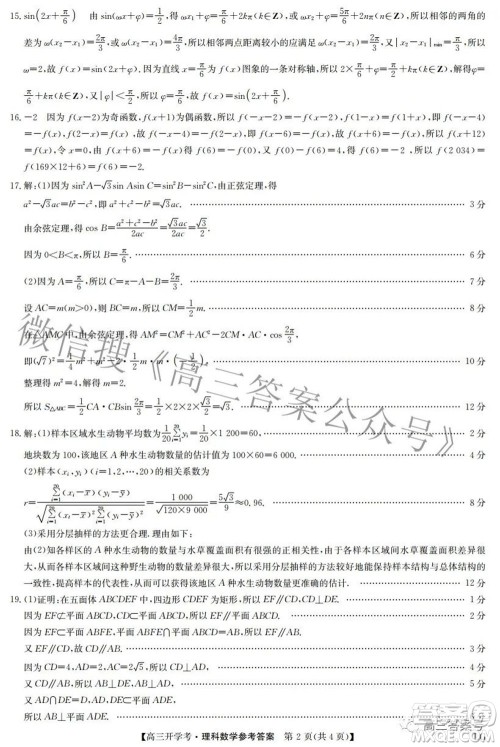 15. sin(2x+π/6) 由 sin(ωx+φ)=1/2,得 ωx₁+φ=π/6+2kπ(k∈Z),或 ωx₂+φ=5π/6+2nπ(n∈Z),所以相邻的两角的
差为 ω(x₂-x₁)=2π/3,或 ω(x₂-x₁)=4π/3,所以相邻两点距离较小的应满足 ω(x₂-x₁)=2π/3,又|x₂-x₁|min=π/3,所以
ω=2,故 f(x)=sin(2x+φ).因为直线 x=π/6 为 f(x)图象的一条对称轴,所以 2×π/6+φ=π/2+kπ(k∈Z),解得φ=
π/6+kπ(k∈Z),又|φ|<π/2,所以 φ=π/6,故 f(x)=sin(2x+π/6).
16. -2 因为 f(x)为奇函数,f(x+1)为偶函数,所以 f(-x-2)=-f(x+2),f(-x-1+1)=f(x+1+1),即 f(-x-4)
=-f(x),f(2-x)=f(x),故 f(-x-4)=-f(2-x),即 f(x-6)=-f(x),故 f(x+6)=-f(x),所以 f(x+12)
=f(x),令 x=0,得 f(-6)=-f(0),又 f(0)-f(6)=4,得 f(6)=-2,所以 f(2 034)=
f(169×12+6)=f(6)=-2.
17. 解:(1)因为 sin²A-√3sin Asin C=sin²B-sin²C,由正弦定理,得
a²-√3ac=b²-c²,即 a²+c²-b²=√3ac. 3 分
由余弦定理,得 cos B=(a²+c²-b²)/2ac=√3ac/2ac=√3/2.
因为 0<B<π,所以 B=π/6. 6 分
(2)因为 A=π/6,所以 C=π-A-B=2π/3. 7 分
设 AC=m(m>0),则 BC=m,所以 CM=1/2m. 8 分
在△AMC 中,由余弦定理,得 AM²=CM²+AC²-2CM·AC·cos 2π/3,
即(√7)²=1/4m²+m²-2·1/2m·m·(-1/2), 10 分
整理得 m²=4,解得 m=2.
所以 S△ABC=1/2CA·CBsin 2π/3=1/2×2×2×√3/2=√3. 12 分
18. 解:(1)样本区域水生动物平均数为 1/20∑yᵢ=1/20×1 200=60, 2 分
地块数为 100,该地区 A 种水生动物数量的估计值为 100×60=6 000. 4 分
(2)样本(xᵢ,yᵢ)(i=1,2,…,20)的相关系数为
r=∑(xᵢ-x̄)(yᵢ-ȳ)/√(∑(xᵢ-x̄)²∑(yᵢ-ȳ)²)=1 000/√(120×9 000)=5√3/9≈0.96. 8 分
(3)采用分层抽样的方法更合理.理由如下:
由(2)知各样区的 A 种水生动物的数量与水草覆盖面积有很强的正相关,由于各样区间水草覆盖面积差异很大,
从而各样区间这种野生动物的数量差异很大,所以采用分层抽样的方法较好地能保持样本结构与总体结构的
一致性,提高样本的代表性,从而可以获得该地区 A 种水生动物数量更准确的估计. 12 分
19. (1)证明:在五面体 ABCDEF 中,四边形 CDEF 为矩形,所以 EF∥CD,CD⊥DE. 1 分
因为 EF⊄平面 ABCD,CD⊂平面 ABCD,所以 EF∥平面 ABCD. 2 分
因为 EF⊂平面 ABFE,平面 ABFE∩平面 ABCD=AB,所以 EF∥AB.
又 EF∥CD,故 CD∥AB. 3 分
因为 CD=4,AD=2,AC=2√5,所以 CD⊥AD. 4 分
又 CD∥AB,所以 AB⊥AD,AB⊥DE. 5 分
又 AD∩DE=D,AD,DE⊂平面 ADE,
所以 AB⊥平面 ADE. 6 分
【高三开学考·理科数学参考答案 第 2 页(共 4 页)】
微信搜《高三答案公众号》